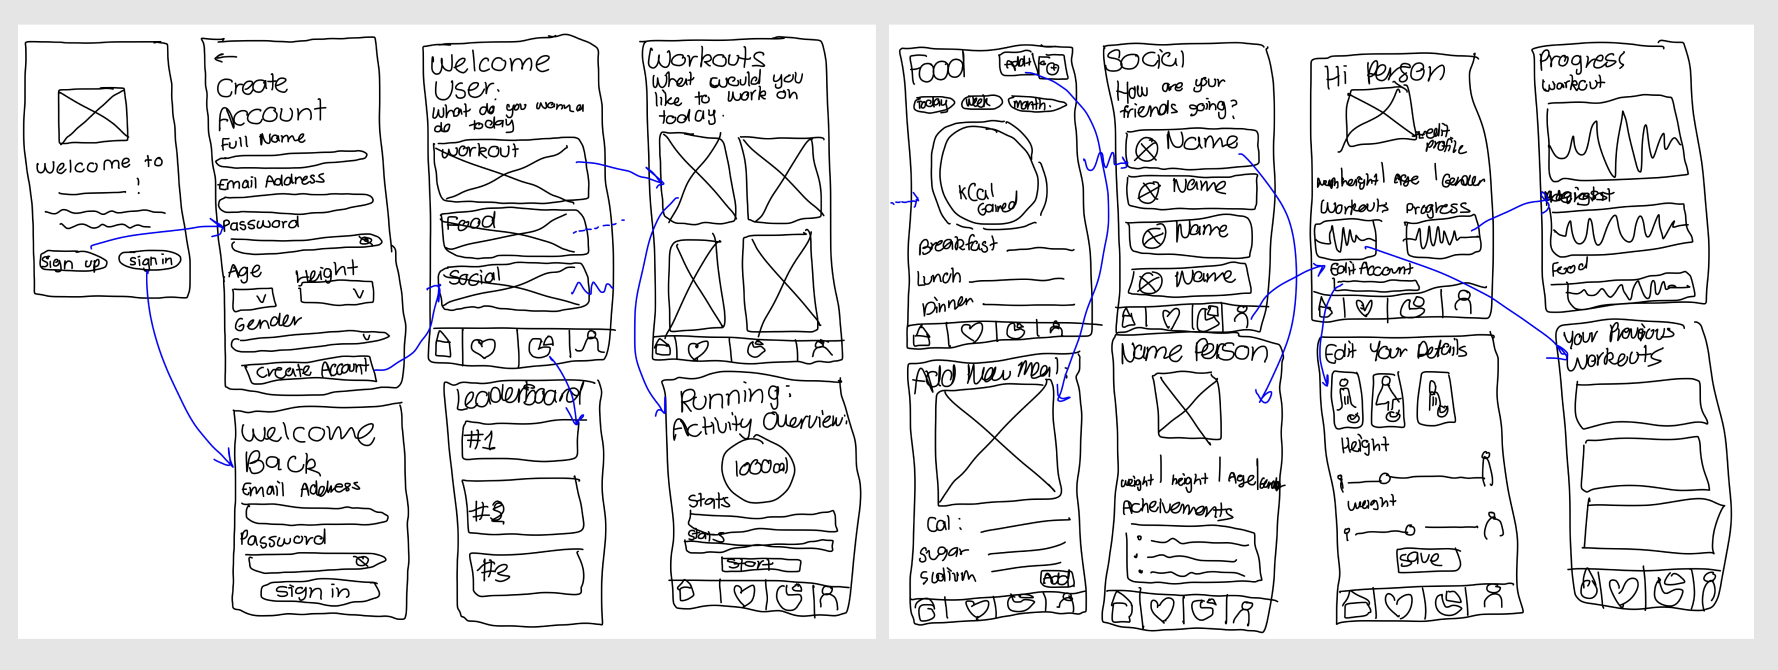 Welcome to
!
Sign up
Sign in
Create
Account
Full Name
Email Address
Password
Age
Height
Gender
Create Account
Welcome
Back
Email Address
Password
Sign in
Welcome
User.
What do you wanna
do today
Workout
Food
Social
Leaderboard
#1
#2
#3
Workouts
What would you
like to work on
today.
Running:
Activity Overview:
1000cal
Stats
Stats
Start
Food
Add+
today
week
month.
KCal
Gained
Breakfast
Lunch
Dinner
Add New Meal:
Cal:
Sugar
Sodium
Add
Social
How are your
friends going?
Name
Name
Name
Name
Name Person
weight | height | Age |
Acheivements
Hi Person
edit
profile
height | Age | Gender
Workouts
Progress
Edit Account
Edit Your Details
Height
weight
Save
Progress
Workout
Food
Your Previous
Workouts